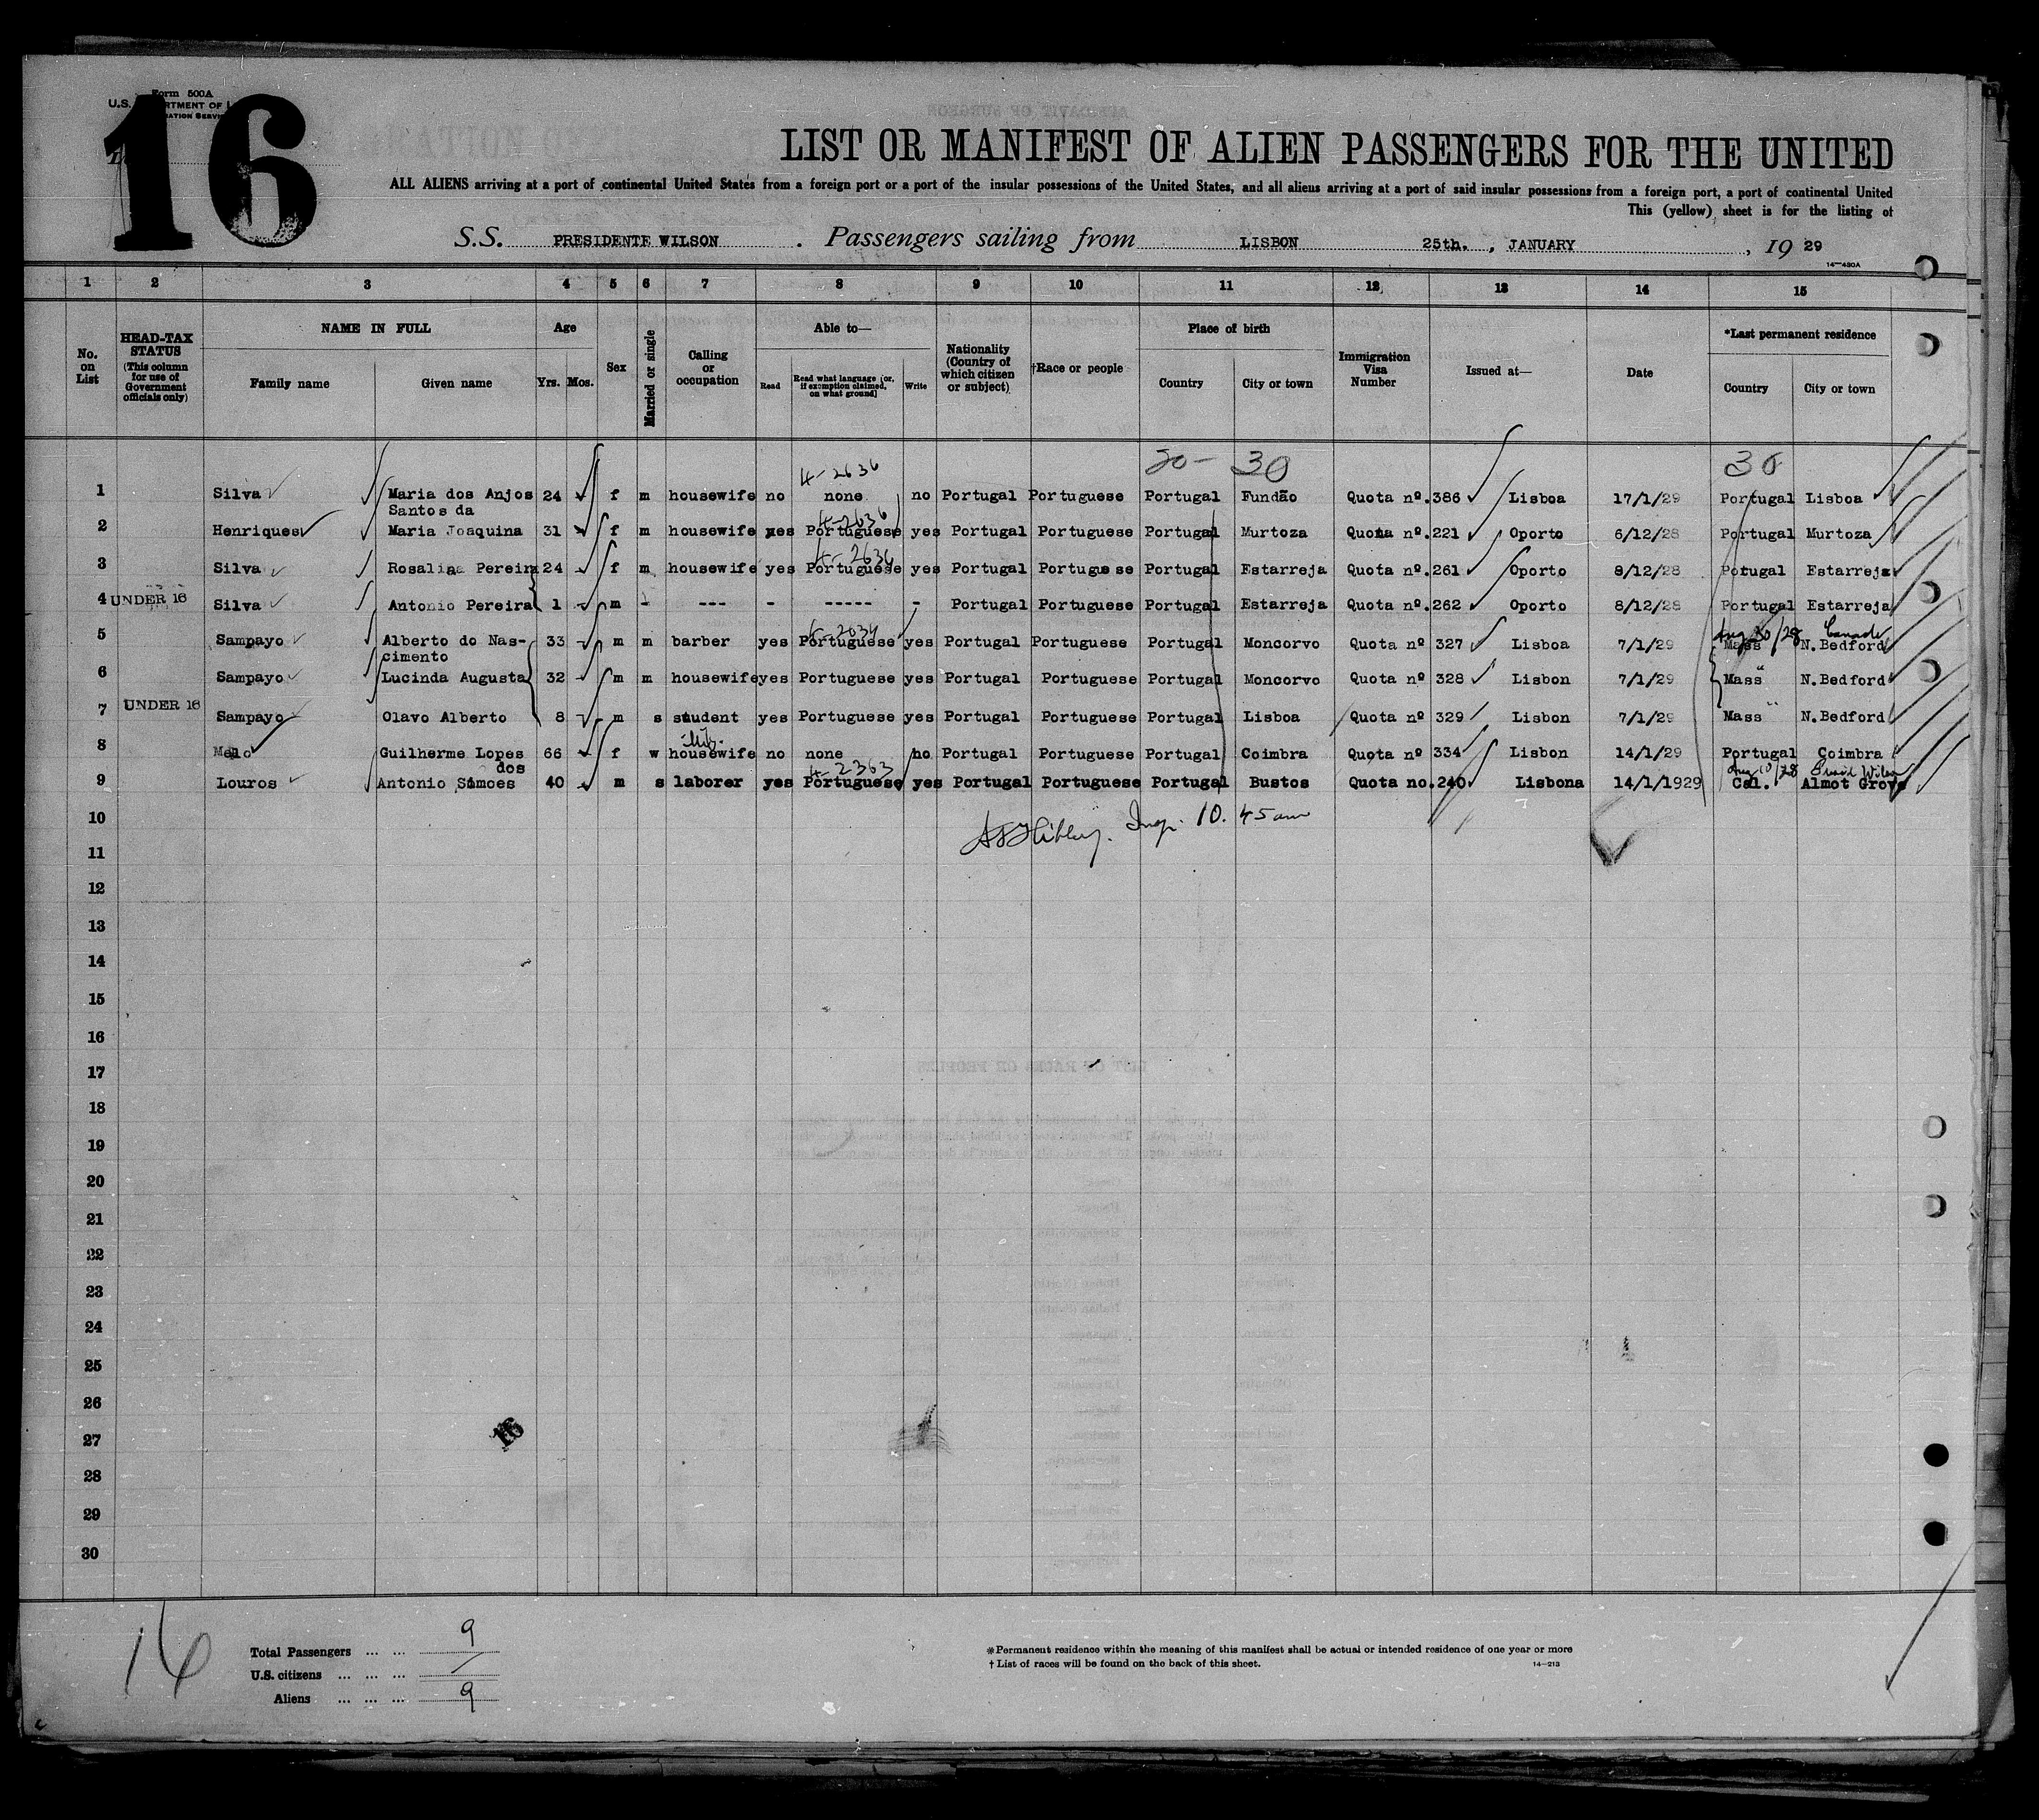 Form 500A
U.S. DEPARTMENT OF L
16
LIST OR MANIFEST OF ALIEN PASSENGERS FOR THE UNITED
ALL ALIENS arriving at a port of continental United States from a foreign port or a port of the insular possessions of the United States, and all aliens arriving at a port of said insular possessions from a foreign port, a port of continental United
This (yellow) sheet is for the listing of
S.S. PRESIDENTE WILSON. Passengers sailing from LISBON 25th., JANUARY, 19 29
14—430A
1 2 3 4 5 6 7 8 9 10 11 12 13 14 15
No. on List HEAD-TAX STATUS (This column for use of Government officials only) NAME IN FULL Family name Given name Age Yrs. Mos. Sex Married or single Calling or occupation Able to— Read Read what language [or, if exemption claimed, on what ground] Write Nationality (Country of which citizen or subject) †Race or people Place of birth Country City or town Immigration Visa Number Issued at— Date *Last permanent residence Country City or town
4-2636 20- 30 30
1 Silva Maria dos Anjos 24 f m housewife no none no Portugal Portuguese Portugal Fundão Quota nº. 386 Lisboa 17/1/29 Portugal Lisboa
Santos da
4-2636
2 Henriques Maria Joaquina 31 f m housewife yes Portuguese yes Portugal Portuguese Portugal Murtoza Quota nº. 221 Oporto 6/12/28 Portugal Murtoza
4-2636
3 Silva Rosalina Pereira 24 f m housewife yes Portuguese yes Portugal Portuguese Portugal Estarreja Quota nº. 261 Oporto 8/12/28 Portugal Estarreja
4 UNDER 16 Silva Antonio Pereira 1 m - --- - ----- - Portugal Portuguese Portugal Estarreja Quota nº. 262 Oporto 8/12/28 Portugal Estarreja
Aug 30/28 Canada
5 Sampayo Alberto do Nas- 33 m m barber yes Portuguese yes Portugal Portuguese Portugal Moncorvo Quota nº 327 Lisboa 7/1/29 Mass N.Bedford
cimento
6 Sampayo Lucinda Augusta 32 m m housewife yes Portuguese yes Portugal Portuguese Portugal Moncorvo Quota nº 328 Lisbon 7/1/29 Mass N.Bedford
7 UNDER 16 Sampayo Olavo Alberto 8 m s student yes Portuguese yes Portugal Portuguese Portugal Lisboa Quota nº 329 Lisbon 7/1/29 Mass N.Bedford
8 Melo Guilherme Lopes 66 f w housewife no none no Portugal Portuguese Portugal Coimbra Quota nº 334 Lisbon 14/1/29 Portugal Coimbra
dos 4-2363 Aug 10/28
9 Louros Antonio Simoes 40 m s laborer yes Portuguese yes Portugal Portuguese Portugal Bustos Quota no. 240 Lisbona 14/1/1929 Cal. Almot Grove
10 Insp. 10.45am
11
12
13
14
15
16
17
18
19
20
21
22
23
24
25
26
16
27
28
29
30
16
Total Passengers ... ... 9
U.S. citizens ... ... ... /
Aliens ... ... ... 9
*Permanent residence within the meaning of this manifest shall be actual or intended residence of one year or more
†List of races will be found on the back of this sheet. 14—213